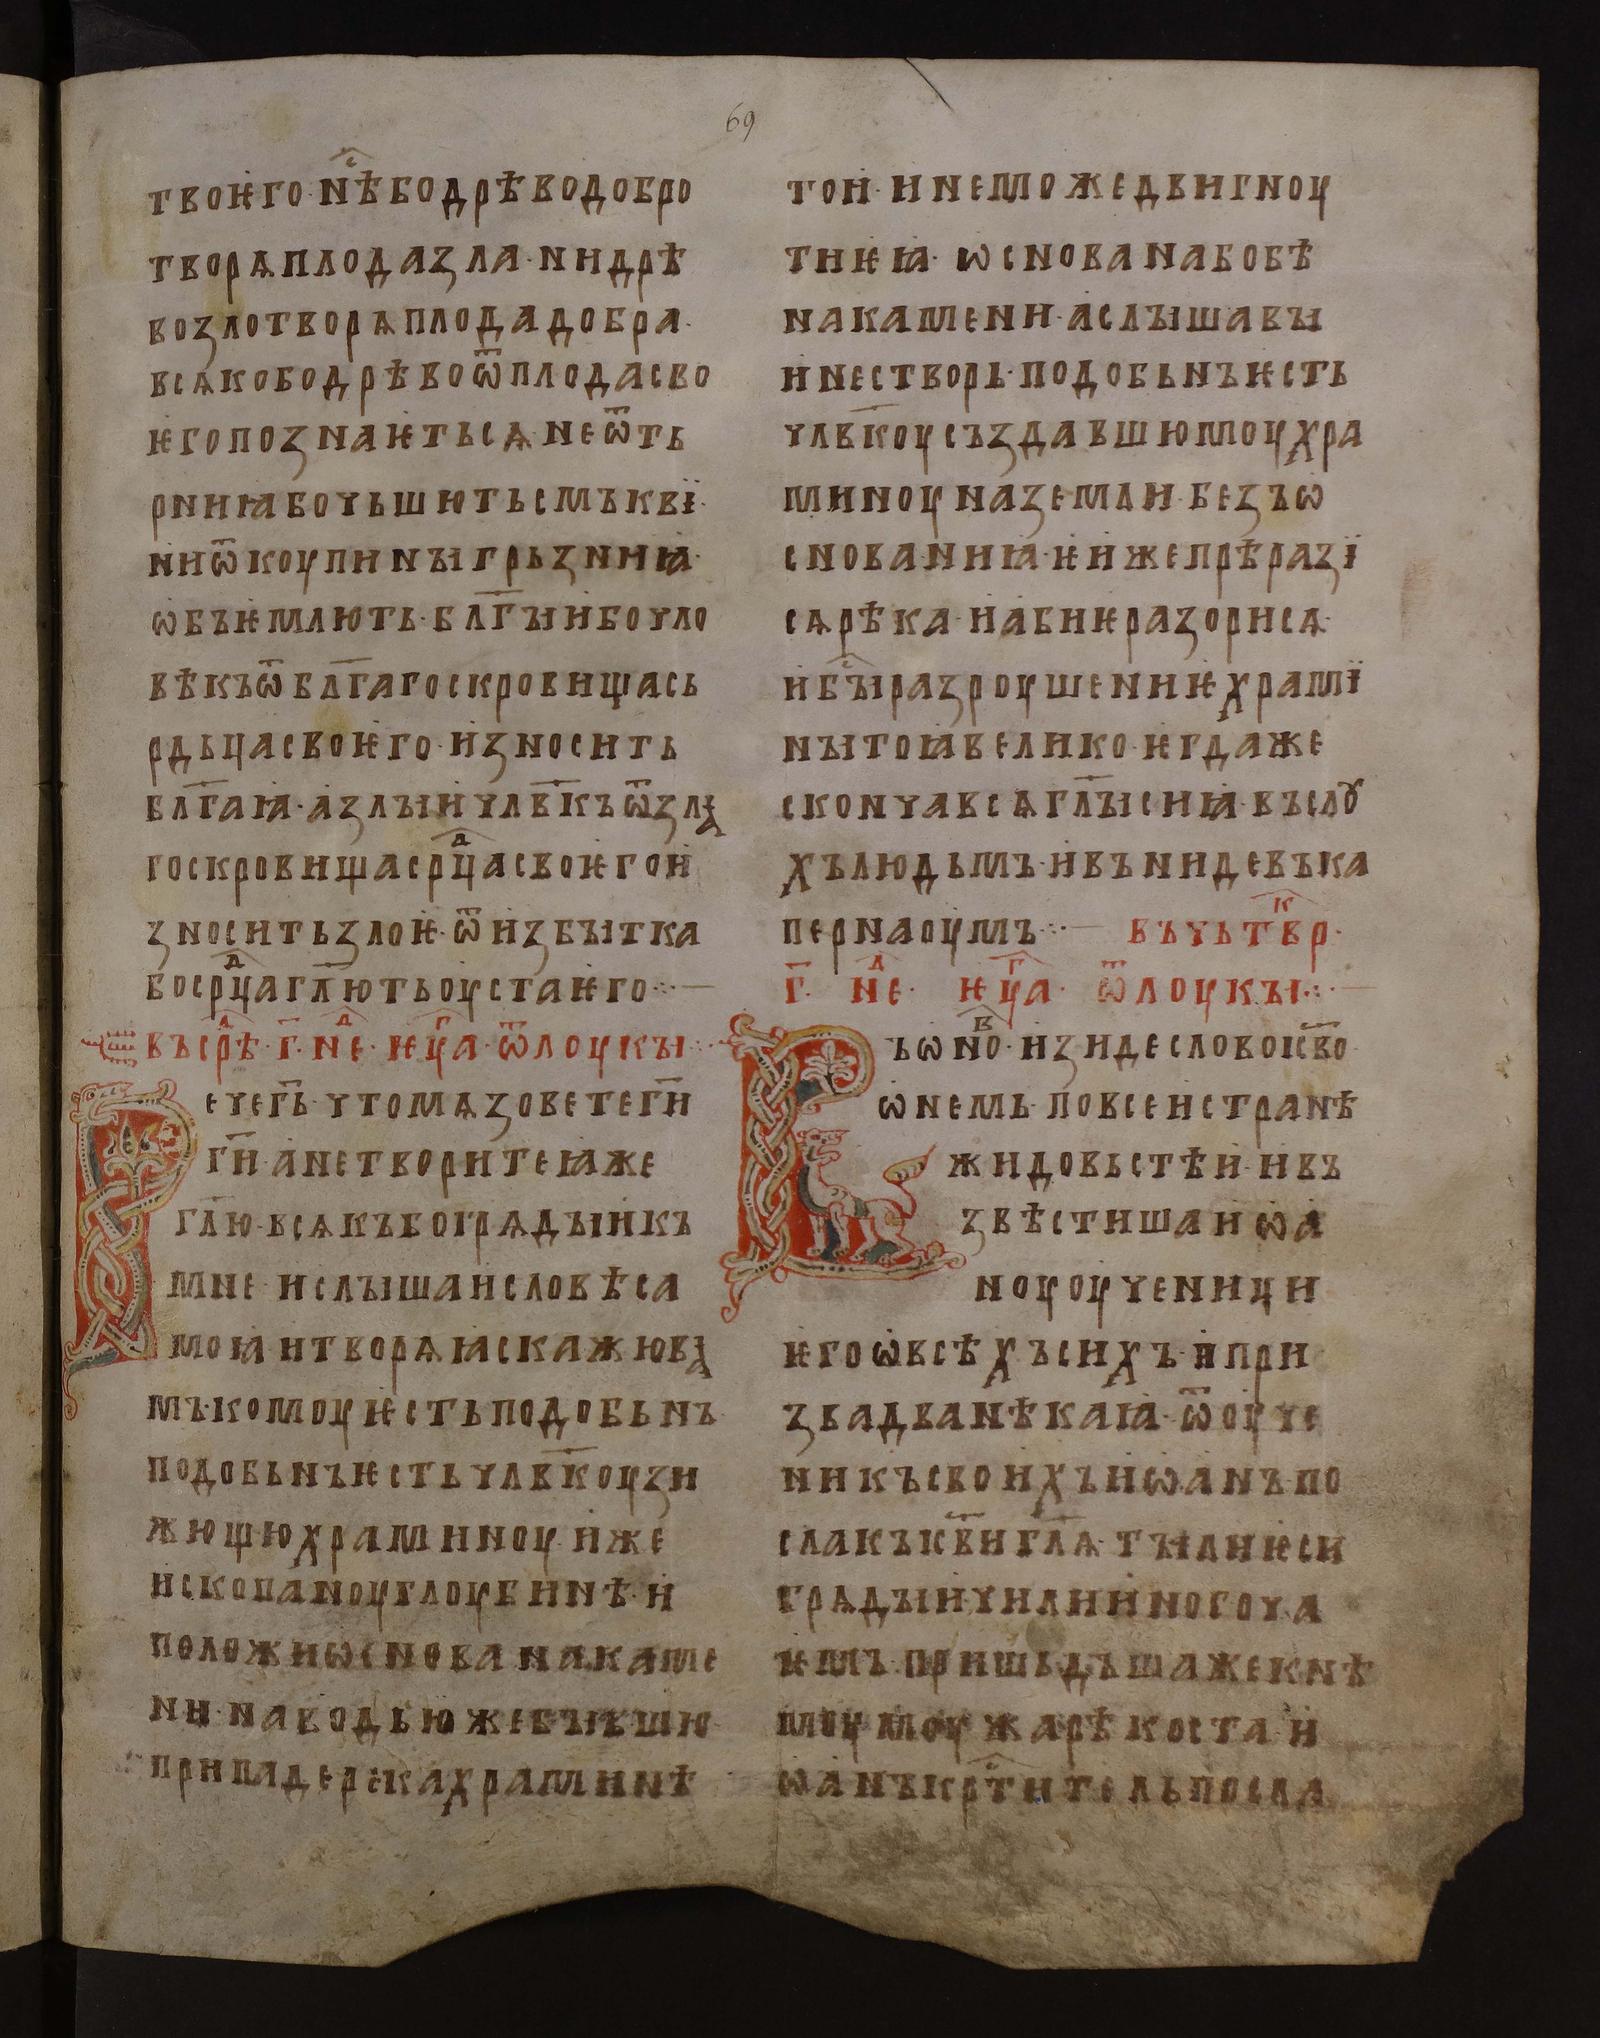 69
твоѥго· нѣ̑с бо дрѣво добро
творѧ плода зла· ни дрѣ
во зло творѧ плода добра·
всѧко бо дрѣво ѿ плода сво
ѥго познаѥтьсѧ не ѿ ть
рниꙗ бо чьшють смъкві·
ни ѿ коупины грьзниꙗ·
ѡбъѥмлють· бл҃гыи бо чло
вѣкъ ѿ бл҃гаго скровища сь
рдьца своѥго· износить
бл҃гаꙗ· а зълыи чл҃вкъ ѿ злꙑ
го скровища срⷣца своѥго и
зносить злоѥ· ѿ избытка
бо срⷣца гл҃ють оуста ѥго
въ срⷣѣ· г҃· неⷣ· ѥуⷢа· ѿ лоукы
ече гь҃· что мѧ зовете ги҃
ги҃· а не творите ꙗже
гл҃ю· всѧкъ бо грѧдыи къ
мне· и слышаи словѣса
моꙗ и творѧ ꙗ скажю вꙑ
мъ· комоу ѥсть подобьнъ
подобьнъ ѥсть чл҃вкоу зи
жющю храминоу· иже
ископа ноу глоубинѣ· и
положи ѡснова на каме
ни· наводью же бывъшю
припаде река храминѣ
тои· и не може двигноу
ти ѥꙗ· ѡснована бо бѣ
на камени· а слышавы
и не створь· подобьнъ ѥсть
чл҃вкоу създавшюмоу хра
миноу на земли· безъ ѡ
снованиꙗ· ѥиже прѣразі
сѧ рѣка· и абиѥ разорисѧ·
и быⷭ разроушениѥ храмі
ны тоꙗ велико· ѥгда же
сконча всѧ гл҃ы сиꙗ· въ слꙋ
хъ людьмъ· и въниде въ ка
пернаоумъ въ чьтвⷦр·
г҃· неⷣ· ѥуⷢа· ѿ лоукы
ъ ѡноⷡ· изиде слово ис҃во
ѡ немь· по всеи странѣ
жидовьстѣи· и въ
звѣстиша иѡа
ноу оученици
ѥго ѡ всѣхъ сихъ· и при
зва два нѣкаꙗ· ѿ оуче
никъ своихъ иѡанъ по
сла къ ис҃ви гл҃ѧ· ты ли ѥси
грѧдыи· чи ли иного ча
ѥмъ· пришьдъша же к нѣ
моу моужа рѣкоста· и
ѡанъ крⷭтитель посла